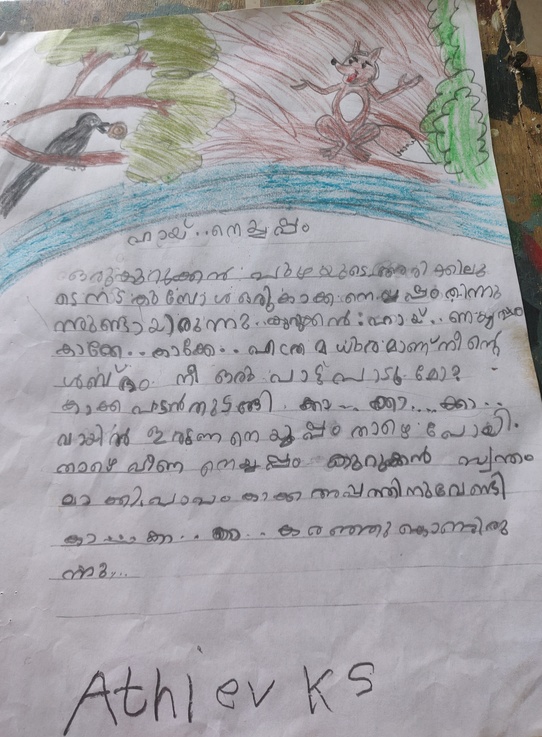 ഹായ്..നെയ്യപ്പം
ഒരുകുറുക്കൻ പുഴയുടെ അരികിലൂ
ടെ നടക്കുമ്പോൾ ഒരുകാക്ക നെയ്യപ്പംതിന്നു
ന്നുണ്ടായിരുന്നു. കുറുക്കൻ : ഹായ്.. നെയ്യപ്പം
കാക്കേ.. കാക്കേ.. എന്ത മധുരമാണ് നിന്റെ
ശബ്ദം നീ ഒരു പാട്ട് പാടുമോ?
കാക്ക പാടൻതുടങ്ങി. കാ... ക്കാ.... ക്കാ..
വായിൽ ഇരുന്ന നെയ്യപ്പം താഴെ പോയി.
താഴെ വീണ നെയ്യപ്പം കുറുക്കൻ സ്വന്തം
മാക്കി.പാവം കാക്ക അപ്പത്തിനുവേണ്ടി
കാ.... ക്കാ.. ക്കാ.. കരഞ്ഞുകൊണ്ടിരു
ന്നു...
Athiev KS